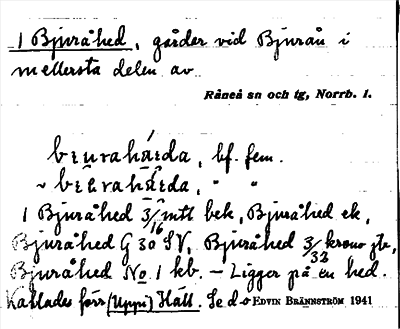 1 Bjuråhed, gårder vid Bjurån i
mellersta delen av
Råneå sn och tg, Norrb. l.
bf. fem.
~ " "
1 Bjuråhed 3/16 mtt bek, Bjuråhed ek,
Bjuråhed G 30 SV, Bjuråhed 3/32 krono jb,
Bjuråhed No 1 kb. – Ligger på en hed.
Kallades förr (Uppn) Häll. Se d-o EDVIN BRÄNNSTRÖM 1941